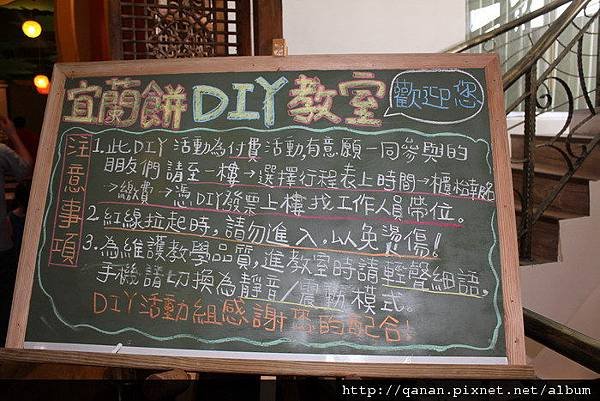 宜蘭餅DIY教室
歡迎您
注意事項
1.此DIY活動為付費活動,有意願一同參與的
朋友們請至一樓→選擇行程表上時間→櫃枱報名
→繳費→憑DIY發票上樓找工作人員帶位。
2.紅線拉起時,請勿進入,以免燙傷!
3.為維護教學品質,進教室時請輕聲細語,
手機請切換為靜音/震動模式。
DIY活動組感謝您的配合!
http://qanan.pixnet.net/album